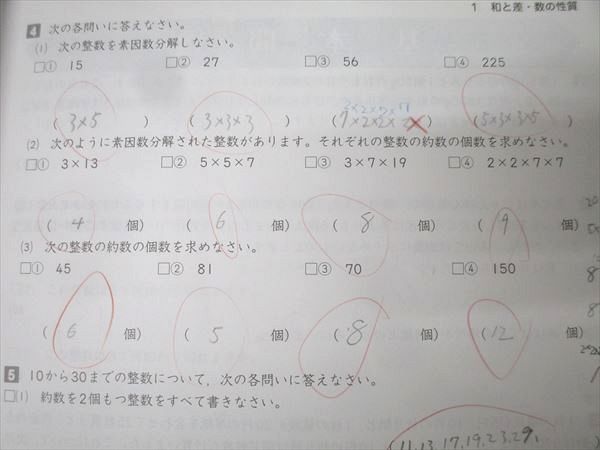 1 和と差・数の性質
4 次の各問いに答えなさい。
(1) 次の整数を素因数分解しなさい。
□① 15 □② 27 □③ 56 □④ 225
(3×5) (3×3×3) (7×2×2× ) (5×3×3×5)
(2) 次のように素因数分解された整数があります。それぞれの整数の約数の個数を求めなさい。
□① 3×13 □② 5×5×7 □③ 3×7×19 □④ 2×2×7×7
(4 個) (6 個) (8 個) (9 個)
(3) 次の整数の約数の個数を求めなさい。
□① 45 □② 81 □③ 70 □④ 150
(6 個) (5 個) (8 個) (12 個)
5 10から30までの整数について，次の各問いに答えなさい。
□(1) 約数を2個もつ整数をすべて書きなさい。
(11,13,17,19,23,29,